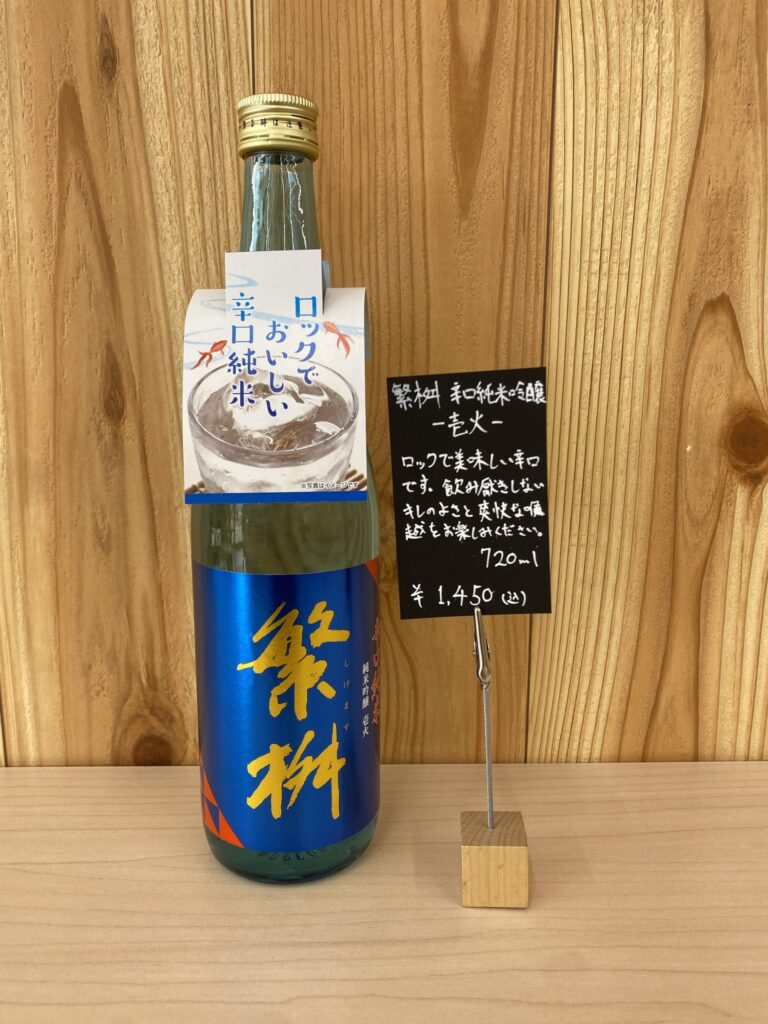 ロックで
おいしい
辛口純米
※写真はイメージです
繁桝
しげます
純米吟醸 壱火
繁桝 辛口純米吟醸
-壱火-
ロックで美味しい辛口
です。飲み飽きしない
キレのよさと爽快な喉
越をお楽しみください。
720ml
¥ 1,450(込)